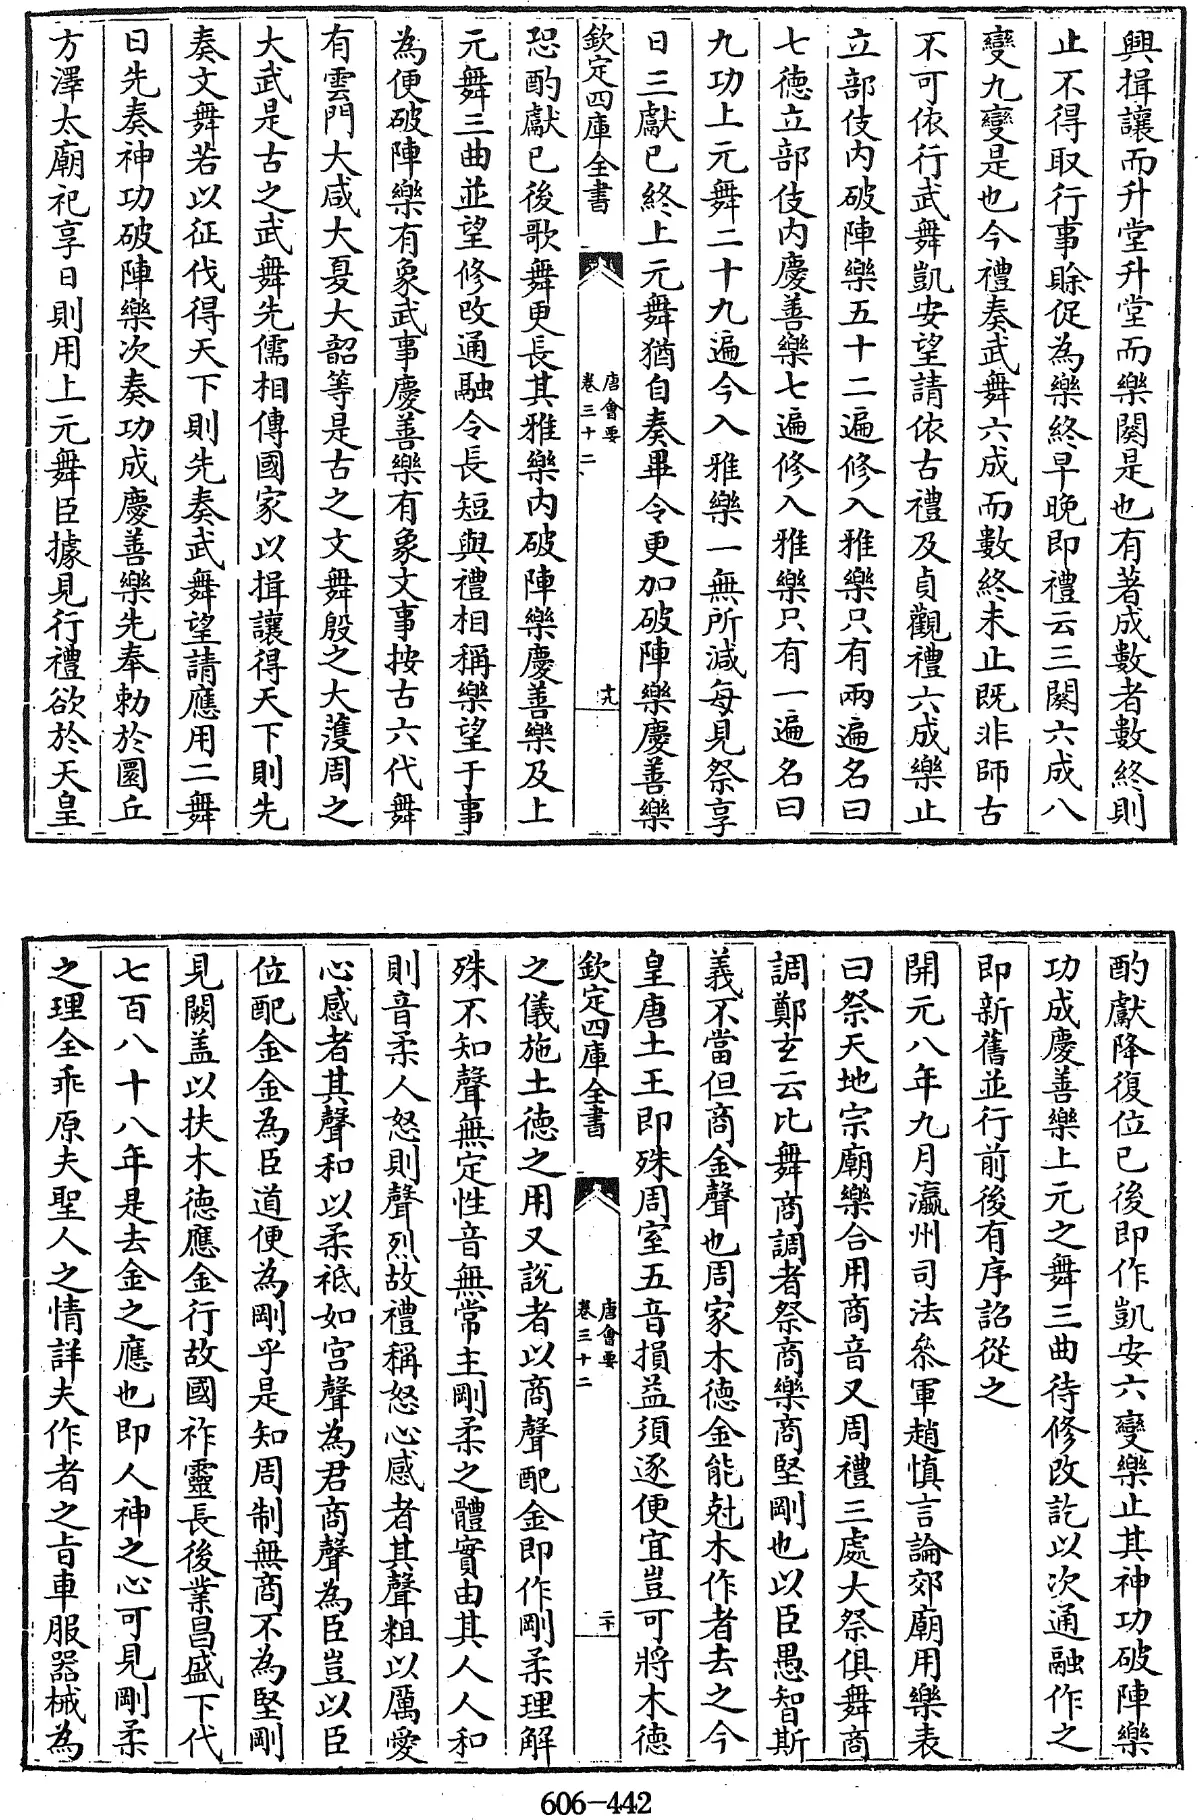 興揖讓而升堂升堂而樂闋是也有著成數者數終則
止不得取行事賒促為樂終早晚即禮云三闋六成八
變九變是也今禮奏武舞六成而數終未止既非師古
不可依行武舞凱安望請依古禮及貞觀禮六成樂止
立部伎內破陣樂五十二遍修入雅樂只有兩遍名曰
七德立部伎內慶善樂七遍修入雅樂只有一遍名曰
九功上元舞二十九遍今入雅樂一無所減每見祭享
日三獻已終上元舞猶自奏畢令更加破陣樂慶善樂
欽定四庫全書
唐會要
卷三十二
十九
恐酌獻已後歌舞更長其雅樂內破陣樂慶善樂及上
元舞三曲並望修改通融令長短與禮相稱樂望于事
為便破陣樂有象武事慶善樂有象文事按古六代舞
有雲門大咸大夏大韶等是古之文舞殷之大濩周之
大武是古之武舞先儒相傳國家以揖讓得天下則先
奏文舞若以征伐得天下則先奏武舞望請應用二舞
日先奏神功破陣樂次奏功成慶善樂先奉勅於圜丘
方澤太廟祀享日則用上元舞臣據見行禮欲於天皇
酌獻降復位已後即作凱安六變樂止其神功破陣樂
功成慶善樂上元之舞三曲待修改訖以次通融作之
即新舊並行前後有序詔從之
開元八年九月瀛州司法叅軍趙慎言論郊廟用樂表
曰祭天地宗廟樂合用商音又周禮三處大祭俱舞商
調鄭玄云比舞商調者祭商樂商堅剛也以臣愚智斯
義不當但商金聲也周家木德金能尅木作者去之今
皇唐土王即殊周室五音損益須逐便宜豈可將木德
欽定四庫全書
唐會要
卷三十二
二十
之儀施土德之用又說者以商聲配金即作剛柔理解
殊不知聲無定性音無常主剛柔之體實由其人人和
則音柔人怒則聲烈故禮稱怒心感者其聲粗以厲愛
心感者其聲和以柔祗如宮聲為君商聲為臣豈以臣
位配金金為臣道便為剛乎是知周制無商不為堅剛
見闕盖以扶木德應金行故國祚靈長後業昌盛下代
七百八十八年是去金之應也即人神之心可見剛柔
之理全乖原夫聖人之情詳夫作者之旨車服器械為
606-442